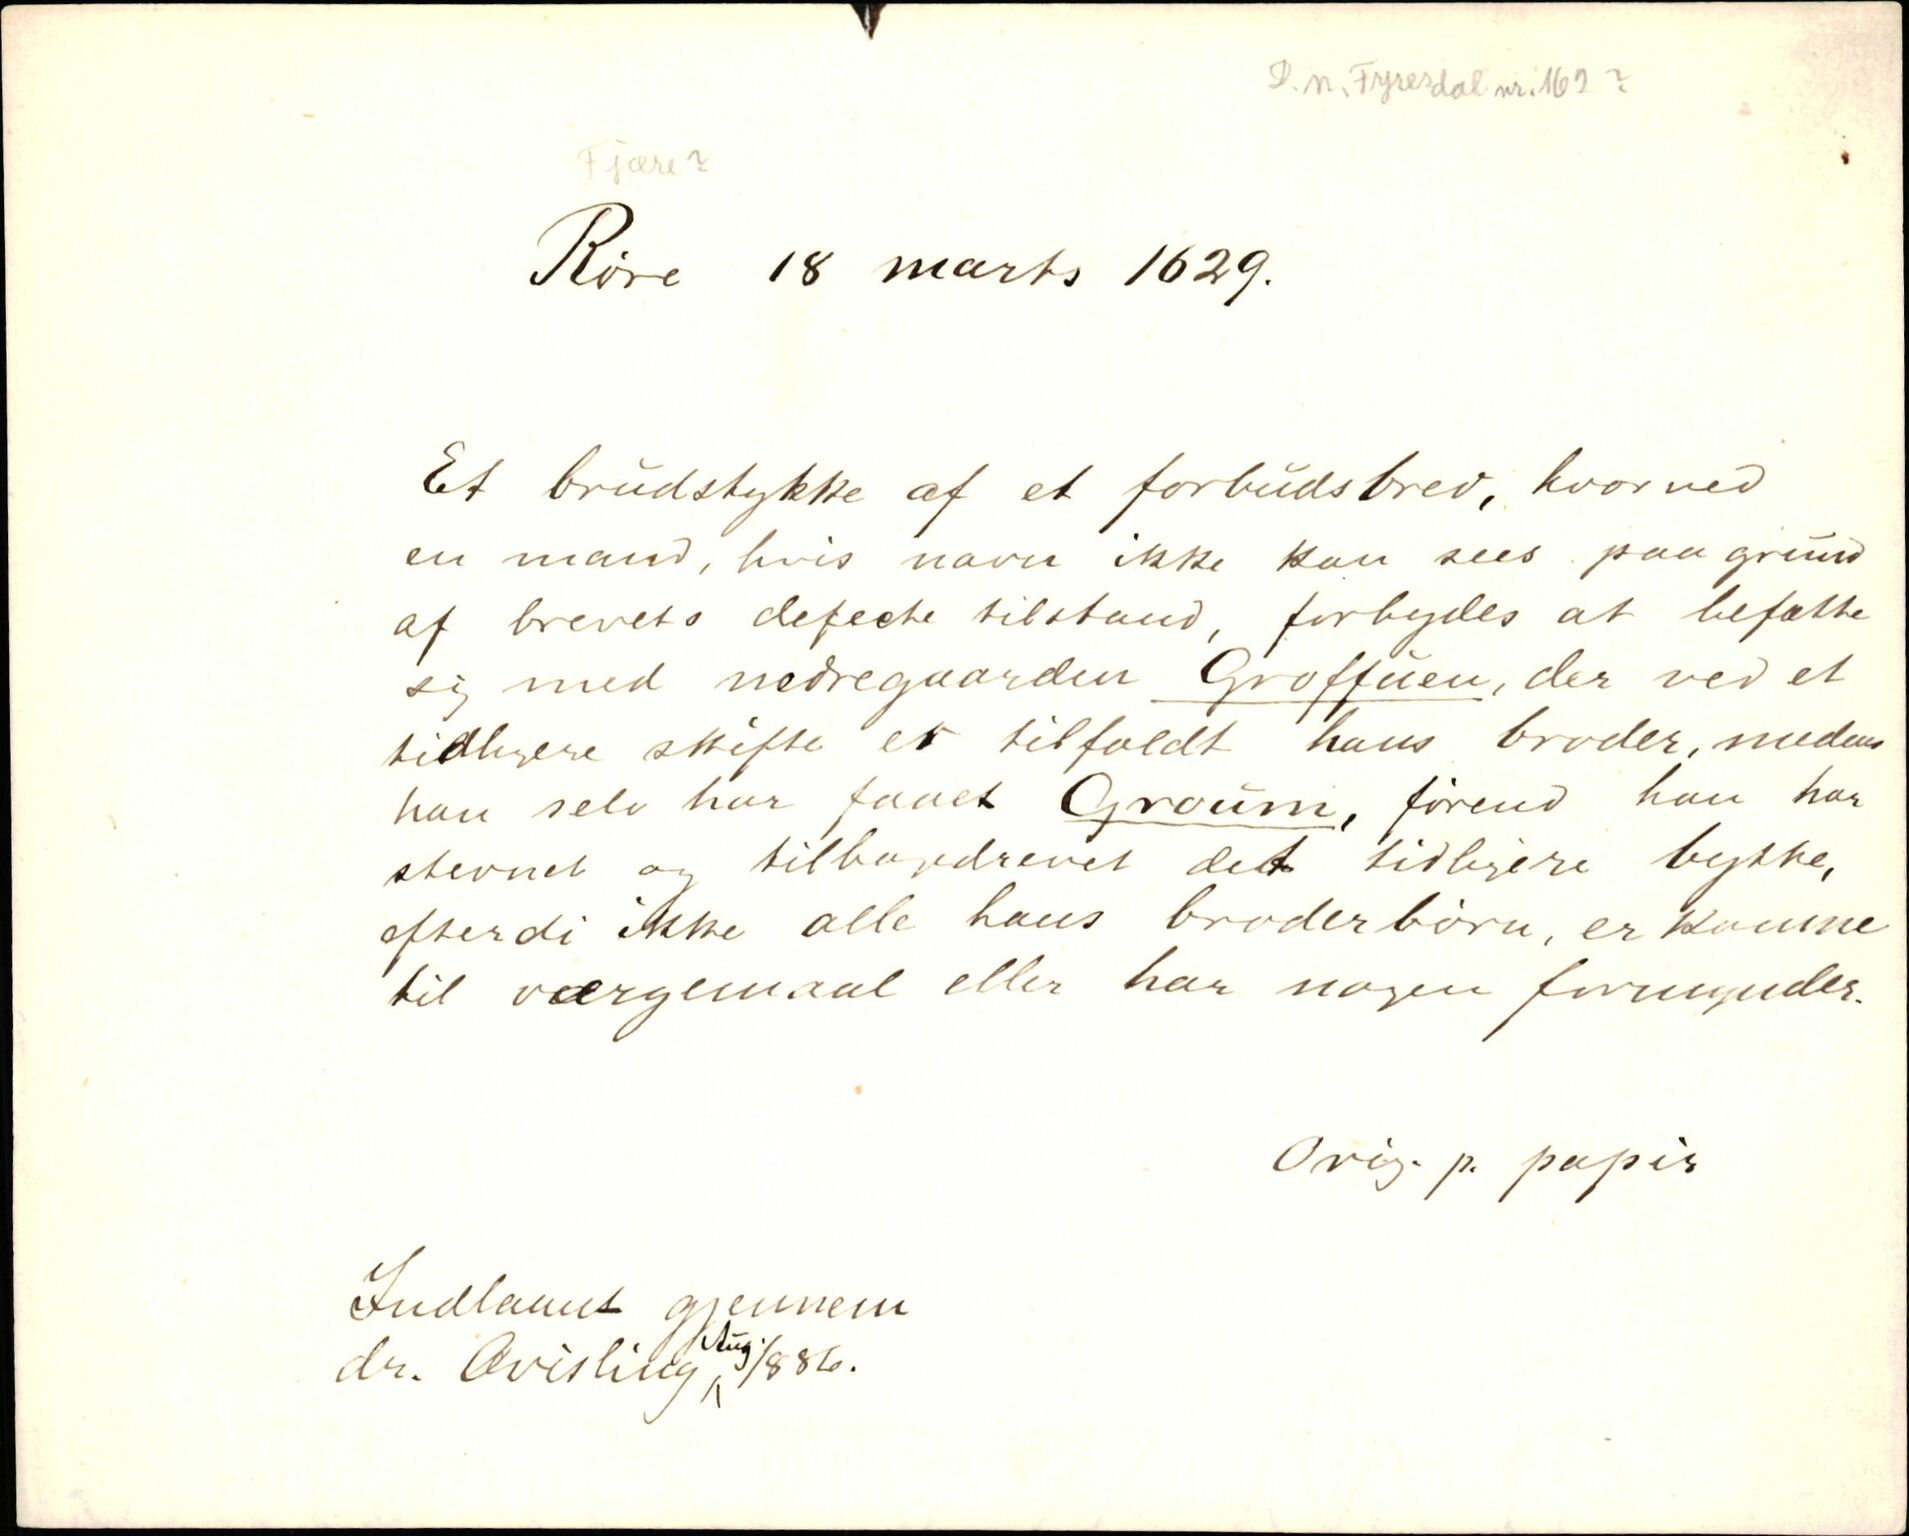 D. N. Fyresdal nr. 162?
Fjære?
Røre 18 marts 1629.
Et brudstykke af et forbudsbrev, hvorved
en mand, hvis navn ikke kan sees paa grund
af brevets defecte tilstand, forbydes at befatte
sig med nedregaarden Groffuen, der ved et
tidligere skifte er tilfaldt hans broder, medens
han selv har faaet Groum, førend han har
stevnet og tilbagedrevet det tidligere bytte,
efterdi ikke alle hans broderbørn, er komne
til værgemaal eller har nogen formynder.
Orig. p. papir
Indlaant gjennem
dr. Qvisling Aug. 1886.